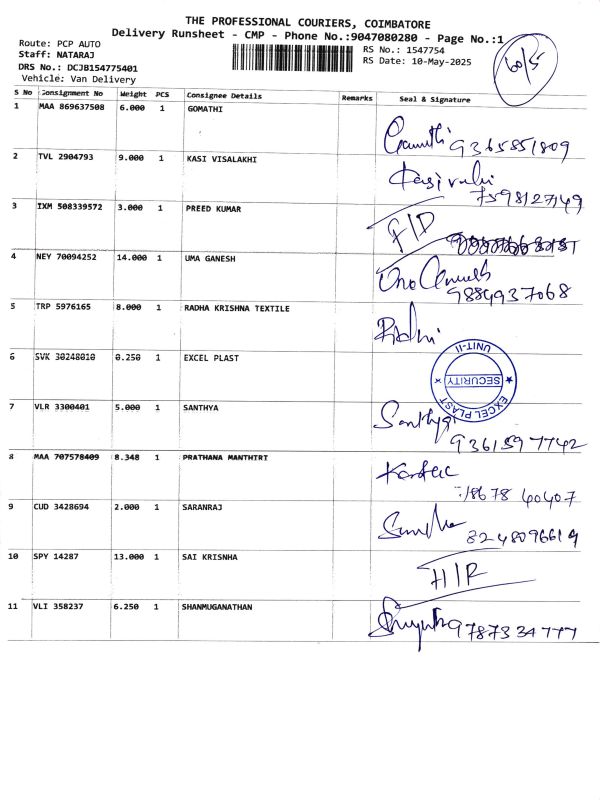 THE PROFESSIONAL COURIERS, COIMBATORE
Delivery Runsheet - CMP - Phone No.:9047080280 - Page No.:1
Route: PCP AUTO
RS No.: 1547754
Staff: NATARAJ
RS Date: 10-May-2025
DRS No.: DCJB154775401
Vehicle: Van Delivery
10/5
S No Consignment No Weight PCS Consignee Details Remarks Seal & Signature
1 MAA 869637508 6.000 1 GOMATHI
9365851809
2 TVL 2904793 9.000 1 KASI VISALAKHI
7598127149
3 IXM 508339572 3.000 1 PREED KUMAR
4 NEY 70094252 14.000 1 UMA GANESH
9884937068
5 TRP 5976165 8.000 1 RADHA KRISHNA TEXTILE
6 SVK 30248010 0.250 1 EXCEL PLAST
EXCEL PLAST UNIT-II SECURITY
7 VLR 3300401 5.000 1 SANTHYA
Santhya
9361597742
8 MAA 707578409 8.348 1 PRATHANA MANTHIRI
9 CUD 3428694 2.000 1 SARANRAJ
8248096619
10 SPY 14287 13.000 1 SAI KRISNHA
11 VLI 358237 6.250 1 SHANMUGANATHAN
9787334777